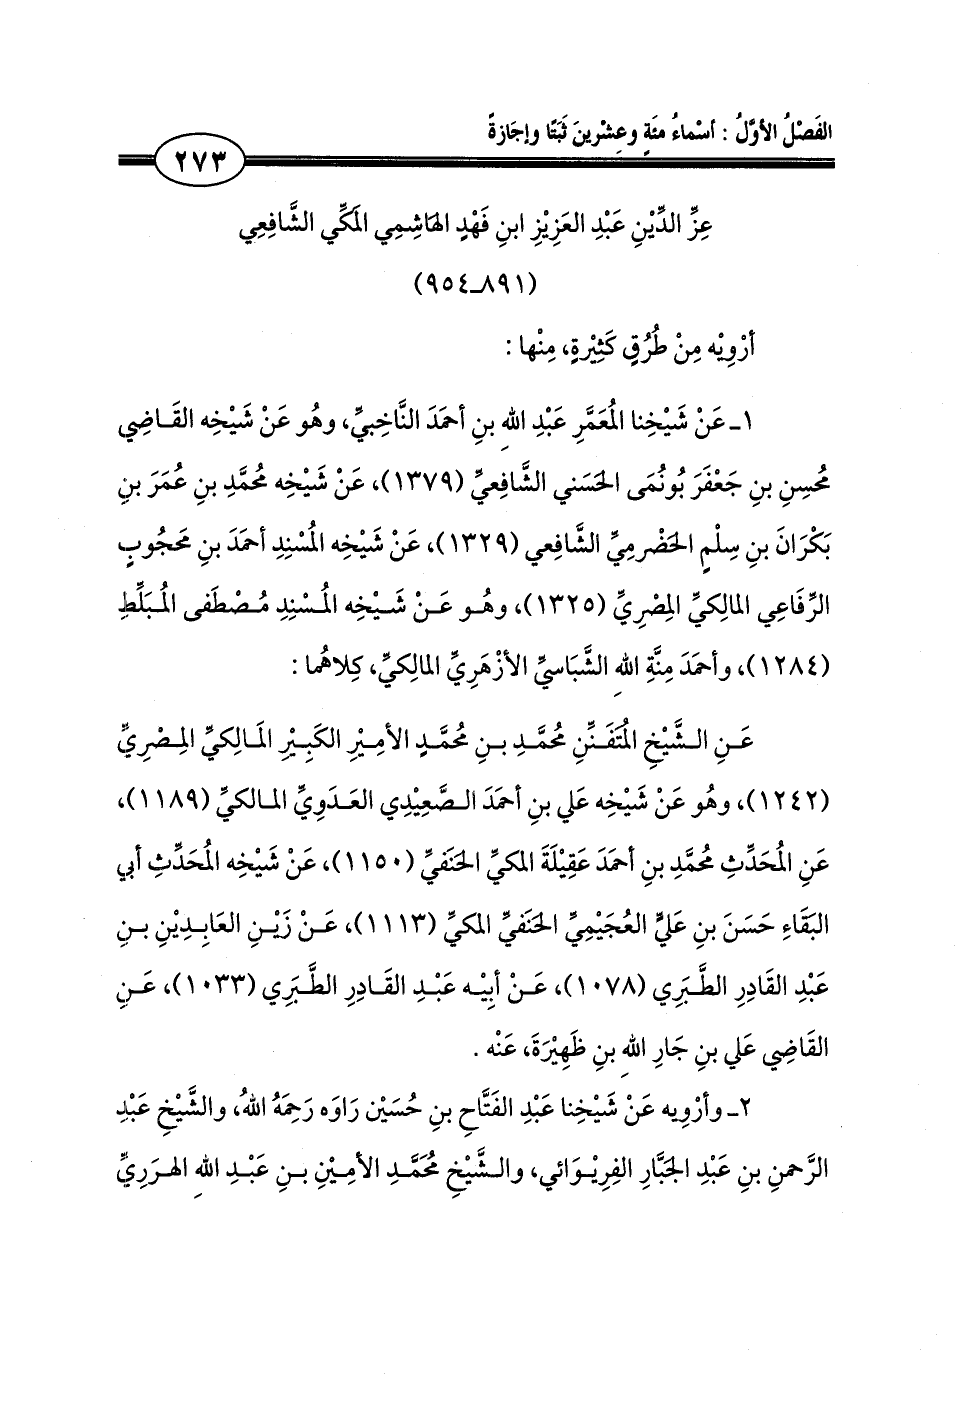 الفَصْلُ الأوَّلُ : أسْماءُ مئةٍ وعِشْرينَ ثَبَتًا وإجَازةً
٢٧٣
عِزِّ الدِّيْنِ عَبْدِ العَزِيْزِ ابنِ فَهْدٍ الهَاشِمِي المَكِّي الشَّافِعِي
(٨٩١ـ٩٥٤)
أرْوِيْه مِنْ طُرُقٍ كَثِيْرةٍ، مِنْها :
١ـ عَنْ شَيْخِنا المُعَمَّرِ عَبْدِ اللهِ بنِ أحمَدَ النَّاخِبيِّ، وهُو عَنْ شَيْخِه القَـاضِي
مُحسِنِ بنِ جَعْفَرَ بُونُمَى الحَسَني الشَّافِعيِّ (١٣٧٩)، عَنْ شَيْخِه مُحمَّدِ بنِ عُمَرَ بنِ
بَكْرَانَ بنِ سِلْمٍ الحَضْرمِيِّ الشَّافِعي (١٣٢٩)، عَنْ شَيْخِه المُسْنِدِ أحمَدَ بنِ مَحجُوبٍ
الرِّفَاعِي المالِكيِّ المِصْرِيِّ (١٣٢٥)، وهُـو عَـنْ شَـيْخِه المُـسْنِدِ مُـصْطَفَى المُـبَلِّطِ
(١٢٨٤)، وأحمَدَ مِنَّةِ اللهِ الشَّبَاسيِّ الأزْهَرِيِّ المالِكيِّ، كِلاهُما :
عَـنِ الـشَّيْخِ المُتَفَـنِّنِ مُحمَّـدِ بـنِ مُحمَّـدٍ الأمِيْرِ الكَبِيْرِ المَـالِكيِّ المِـصْرِيِّ
(١٢٤٢)، وهُو عَنْ شَيْخِه عَلي بنِ أحمَدَ الـصَّعِيْدِي العَـدَوِيِّ المـالكيِّ (١١٨٩)،
عَنِ المُحَدِّثِ مُحمَّدِ بنِ أحمَدَ عَقِيْلَةَ المكيِّ الحَنَفيِّ (١١٥٠)، عَنْ شَيْخِه المُحَدِّثِ أبي
البَقَاءِ حَسَنَ بنِ عَليٍّ العُجَيْمِيِّ الحَنَفيِّ المكيِّ (١١١٣)، عَـنْ زَيْـنِ العَابِـدِيْنِ بـنِ
عَبْدِ القَادِرِ الطَّـبَري (١٠٧٨)، عَـنْ أبِيْـه عَبْـدِ القَـادِرِ الطَّبَرِي (١٠٣٣)، عَـنِ
القَاضِي عَلي بنِ جَارِ اللهِ بنِ ظَهِيْرَةَ، عَنْه .
٢ـ وأرْوِيه عَنْ شَيْخِنا عَبْدِ الفَتَّاحِ بنِ حُسَيْن رَاوَه رَحِمَهُ اللهُ، والشَّيْخِ عَبْدِ
الرَّحمنِ بنِ عَبْدِ الجَبَّارِ الفِرِيْـوَائي، والـشَّيْخِ مُحمَّـدِ الأمِيْنِ بـنِ عَبْـدِ اللهِ الهـرَرِيِّ